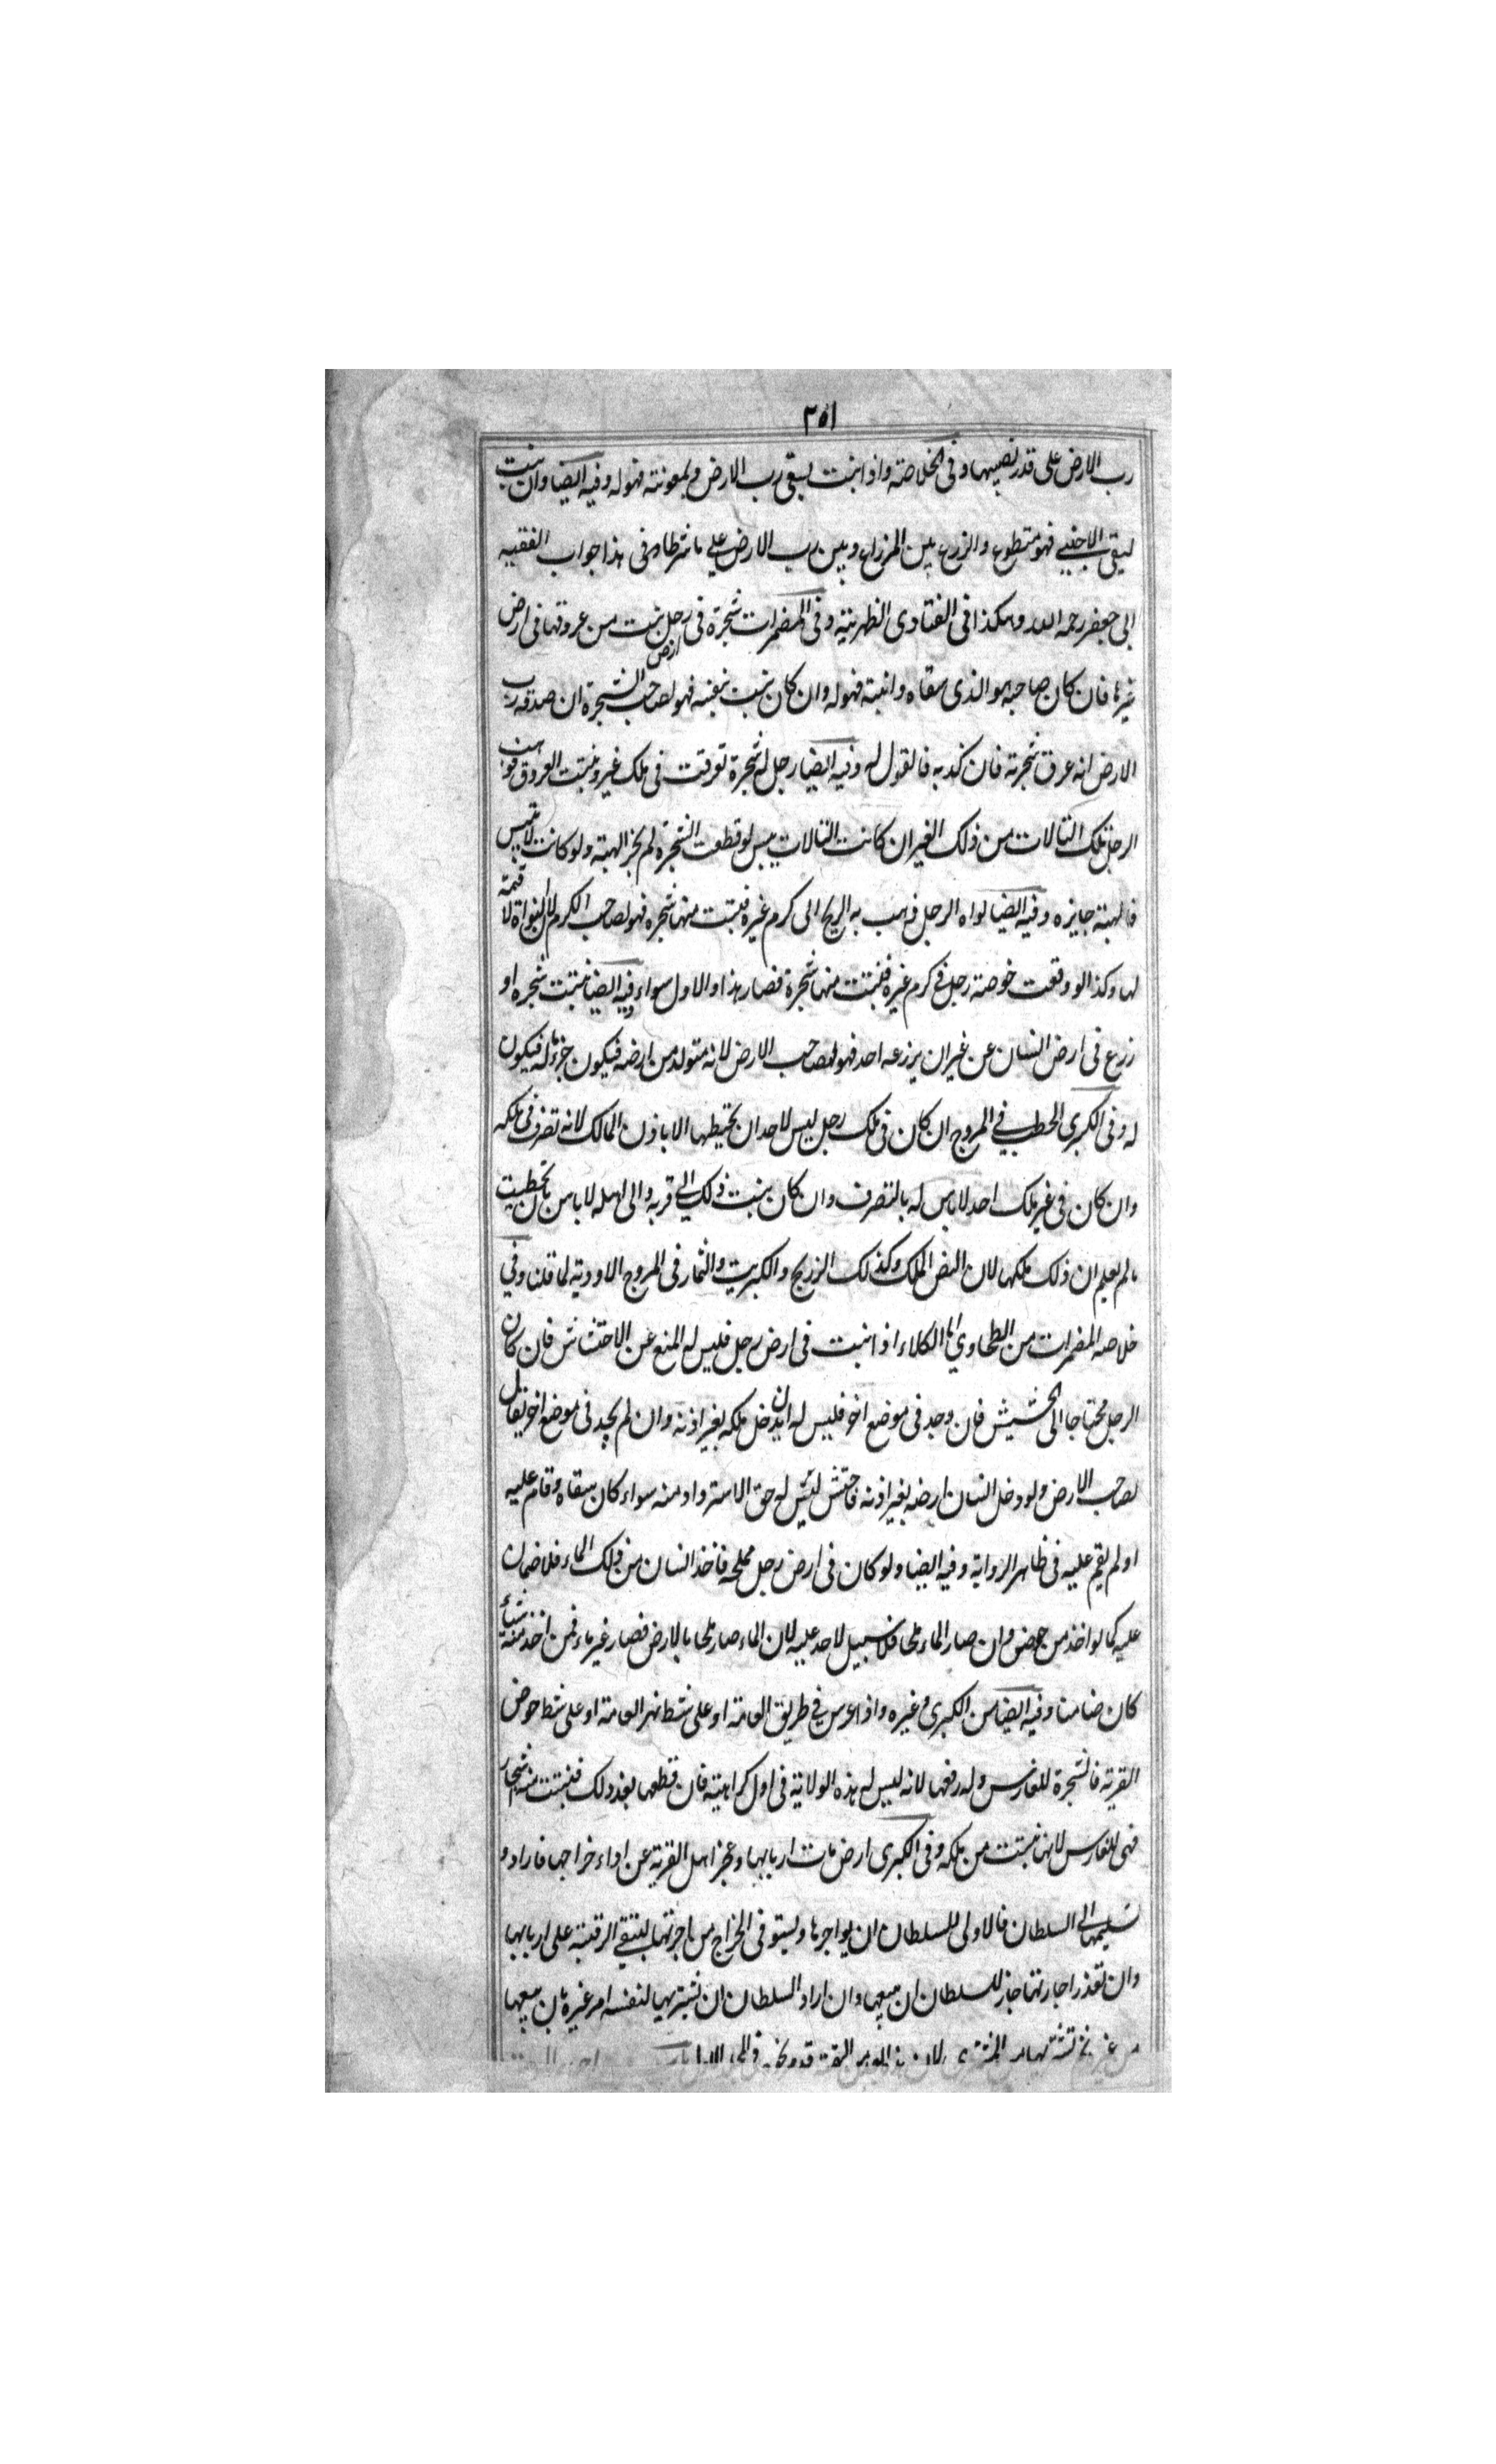 ٢٥١
رب الارض على قدر نصيبهما وفى الخلاصة واذا نبت بسقى رب الارض وبمعونته فهو له وفيه ايضا وان نبت
بسقى الاجنبى فهو متطوع والزرع بين المزارع وبين رب الارض على ما شرطا وفى هذا جواب الفقيه
ابى جعفر رحمه الله وهكذا فى الفتاوى الظهيرية وفى المضمرات شجرة فى ارض رجل نبت من عروقها فى ارض
غيرها فان كان صاحبه هو الذى سقاه وانبته فهو له وان كان نبت بنفسه فهو لصاحب الشجرة ان صدقه رب
الارض انه عرق شجرته فان كذبه فالقول له وفيه ايضا رجل له شجرة تعرقت فى ملك غيره ونبتت العروق فوهب
الرجل تلك التالات من ذلك الغير ان كانت التالات ييبس لو قطعت الشجرة لم يجز الهبة ولو كانت لا تيبس
فالهبة جايزه وفيه ايضا نواه الرجل ذهب به الريح الى كرم غيره فنبتت منها شجره فهو لصاحب الكرم لان النواة لا قيمة
لها وكذا لو وقعت خوصة رجل فى كرم غيره فنبتت منها شجرة فصار هذا والاول سواء وفيه ايضا نبتت شجره او
زرع فى ارض انسان عن غير ان يزرعه احد فهو لصاحب الارض لانه متولد من ارضه فيكون جزءا له فيكون
له وفى الكبرى الحطب فى المروج ان كان فى ملك رجل ليس لاحد ان يحتطبها الا باذن المالك لانه تصرف فى ملكه
وان كان فى غير ملك احد لا باس له بالتصرف وان كان ينبت ذلك الى قريه والى اهله لا باس بان يحتطب
ما لم يعلم ان ذلك ملكها لان النص الملك وكذلك الزرنيخ والكبريت والثمار فى المروج الاودية لما قلنا وفى
خلاصه المضمرات من الطحاوى اما الكلاء اذا نبت فى ارض رجل فليس له المنع عن الاحتشاش فان كان
الرجل محتاجا الى الحشيش فان وجد فى موضع اخر فليس له ان يدخل ملكه بغير اذنه وان لم يجد فى موضع اخر يقال
لصاحب الارض ولو دخل انسان ارضه بغير اذنه فاحتش ليس له حق الاسترداد منه سواء كان سقاه وقام عليه
او لم يقم عليه فى ظاهر الرواية وفيه ايضا ولو كان فى ارض رجل مملحه فاخذ انسان من ذلك الماء فلا ضمان
عليه كما لو اخذ من حوض وان صار الماء ملحا فلا سبيل لاحد عليه لان الماء صار ملحا بالارض فصار غير ماء فمن اخذ منه شيأ
كان ضامنا وفيه ايضا من الكبرى وغيره واذا غرس فى طريق العامة او على شط نهر العامة او على شط حوض
القرية فالشجرة للغارس وله رفعها لانه ليس له هذه الولاية فى اول كراهية فان قطعها بعد ذلك فنبتت منه شجار
فهى للغارس لانها نبتت من ملكه وفى الكبرى ارض مات اربابها وعجز اهل القرية عن اداء خراجها فارادو
تسليمها الى السلطان فالاولى للسلطان ان يواجرها ويستوفى الخراج من اجرتها لتبقى الرقبة على اربابها
وان تعذر اجارتها جاز للسلطان ان يبيعها وان اراد السلطان ان يشتريها لنفسه امر غيره بان يبيعها
من غيره ثم تشتريها من المشترى لان هذا